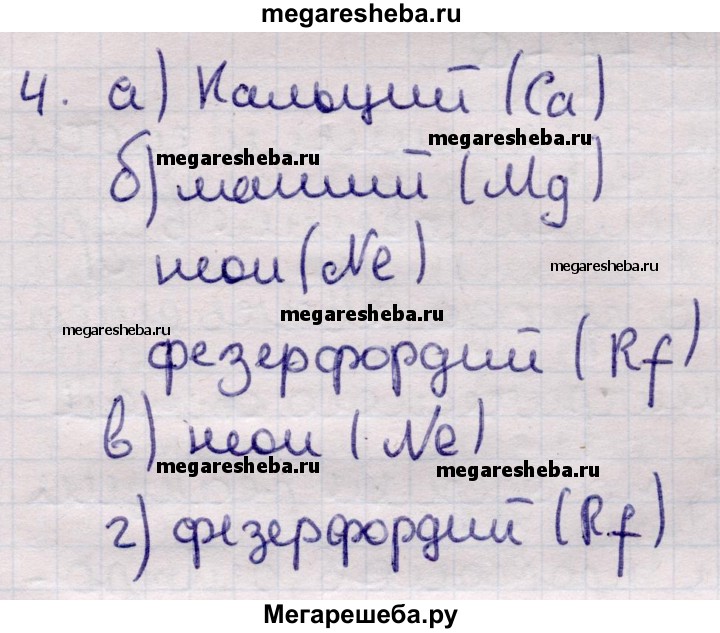 megaresheba.ru
4. а) Кальций (Ca)
megaresheba.ru
б) магний (Mg)
megaresheba.ru
неон (Ne)
megaresheba.ru
megaresheba.ru
megaresheba.ru
фезерфордий (Rf)
в) неон (Ne)
megaresheba.ru
megaresheba.ru
г) фезерфордий (Rf)
Мегарешеба.ру